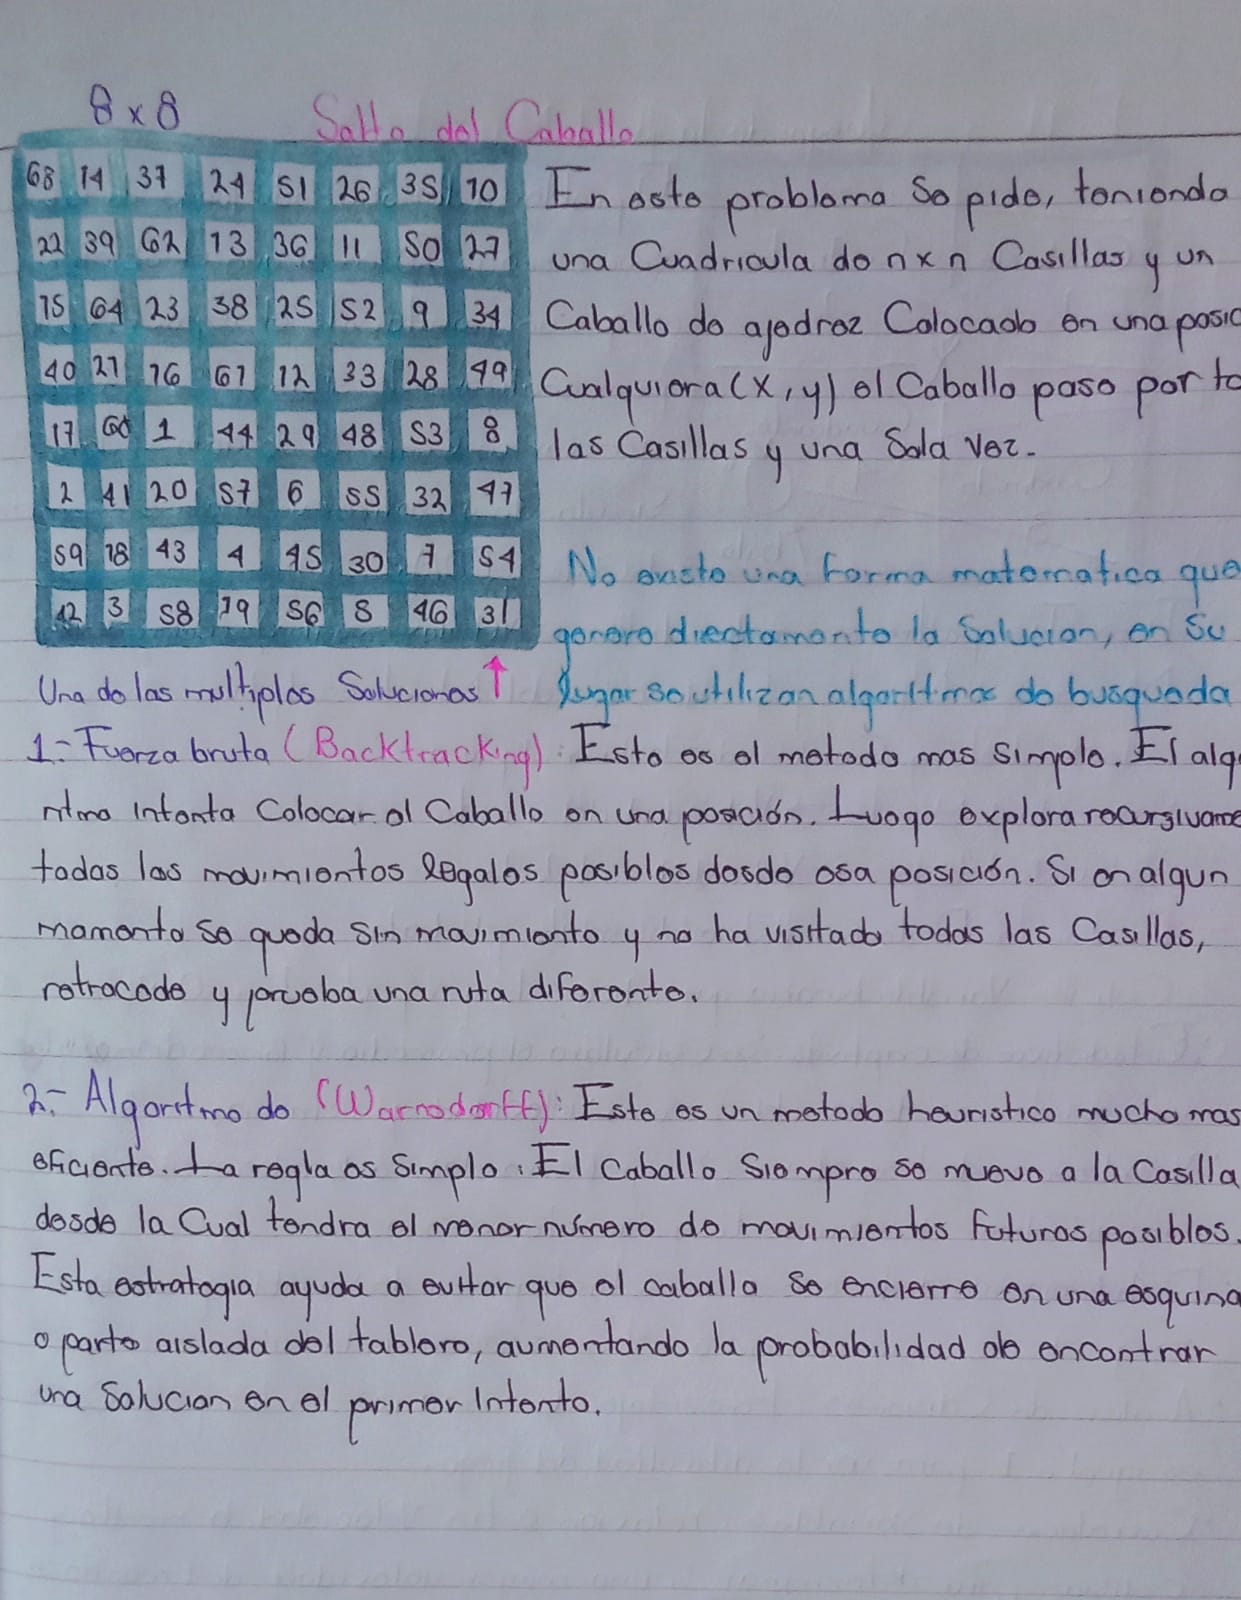 8 x 8
Salto del Caballo
68 14 37 24 51 26 35 10
22 39 62 13 36 11 50 27
15 64 23 38 25 52 9 34
40 21 16 61 12 33 28 49
17 60 1 44 29 48 53 8
2 41 20 57 6 55 32 47
59 18 43 4 45 30 7 54
42 3 58 19 56 5 46 31
Una de las multiples Soluciones ↑
En este problema Se pide, teniendo
una Cuadricula de n x n Casillas y un
Caballo de ajedrez Colocado en una posic
Cualquiera (x, y) el Caballo pase por to
las Casillas y una Sola Vez.
No existe una forma matematica que
genere directamente la Solucion, en Su
lugar se utilizan algoritmos de busqueda
1.- Fuerza bruta (Backtracking): Este es el metodo mas simple. El algo
ritmo Intenta Colocar al Caballo en una posición. Luego explora recursivame
todas los movimientos legales posibles desde esa posición. Si en algun
momento se queda Sin movimiento y no ha visitado todas las Casillas,
retrocede y prueba una ruta diferente.
2.- Algoritmo de (Warnsdorff): Este es un metodo heuristico mucho mas
eficiente. La regla es Simple: El Caballo Siempre se mueve a la Casilla
desde la Cual tendra el menor número de movimientos futuros posibles.
Esta estrategia ayuda a evitar que el caballo se encierre en una esquina
o parte aislada del tablero, aumentando la probabilidad de encontrar
una Solucion en el primer Intento.